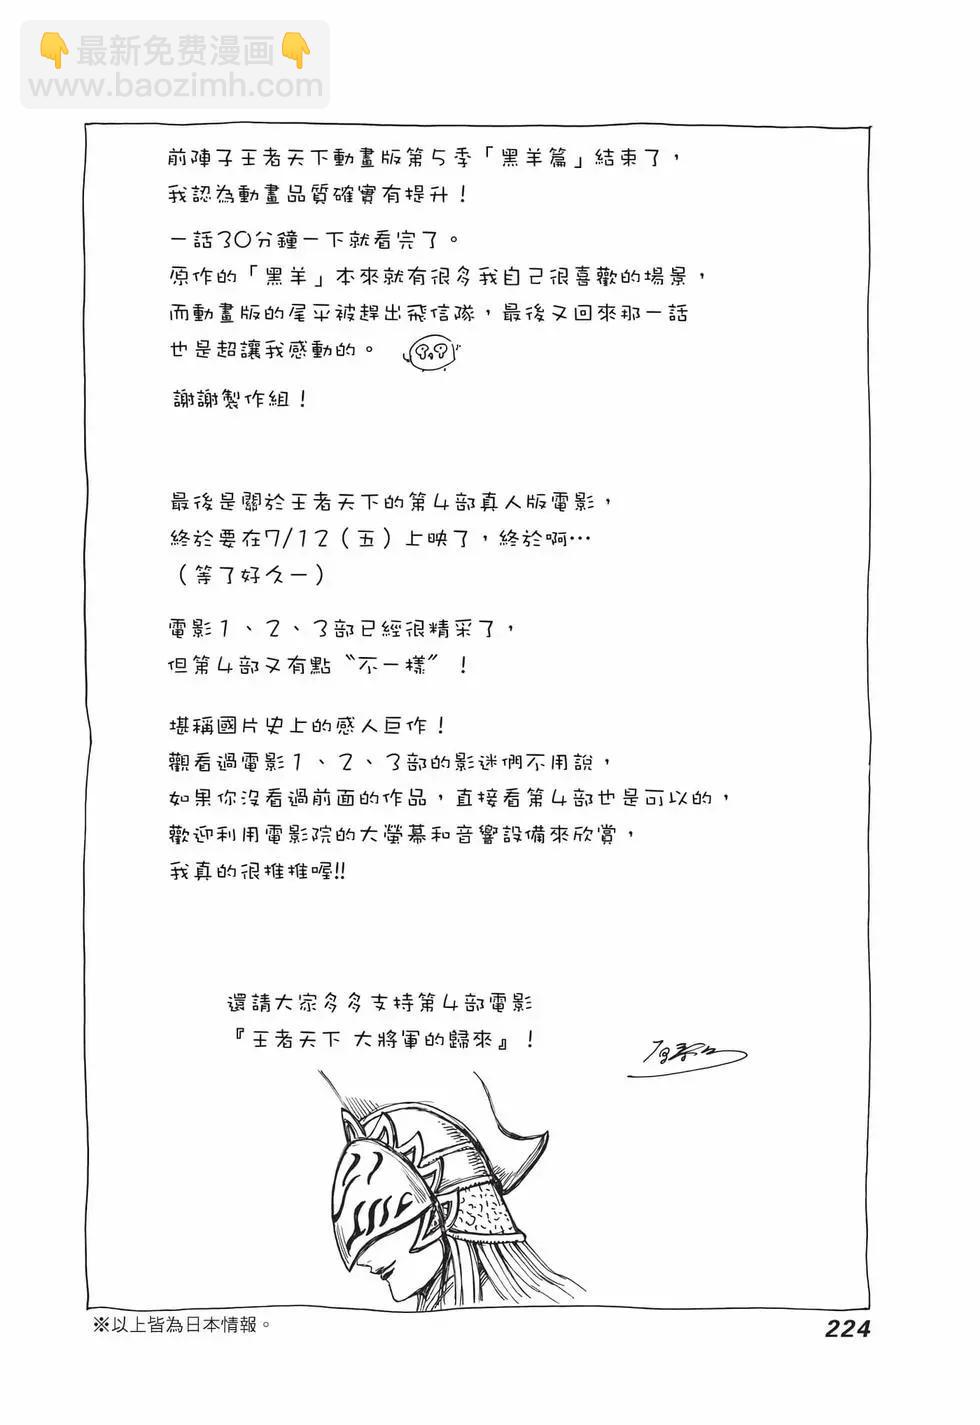 👇最新免费漫画👇
www.baozimh.com
前陣子王者天下動畫版第5季「黑羊篇」結束了，
我認為動畫品質確實有提升！
一話30分鐘一下就看完了。
原作的「黑羊」本來就有很多我自己很喜歡的場景，
而動畫版的尾平被趕出飛信隊，最後又回來那一話
也是超讓我感動的。
謝謝製作組！
最後是關於王者天下的第4部真人版電影，
終於要在7/12（五）上映了，終於啊…
（等了好久－）
電影1、2、3部已經很精采了，
但第4部又有點〝不一樣〞！
堪稱國片史上的感人巨作！
觀看過電影1、2、3部的影迷們不用說，
如果你沒看過前面的作品，直接看第4部也是可以的，
歡迎利用電影院的大螢幕和音響設備來欣賞，
我真的很推推喔!!
還請大家多多支持第4部電影
『王者天下 大將軍的歸來』！
※以上皆為日本情報。
224